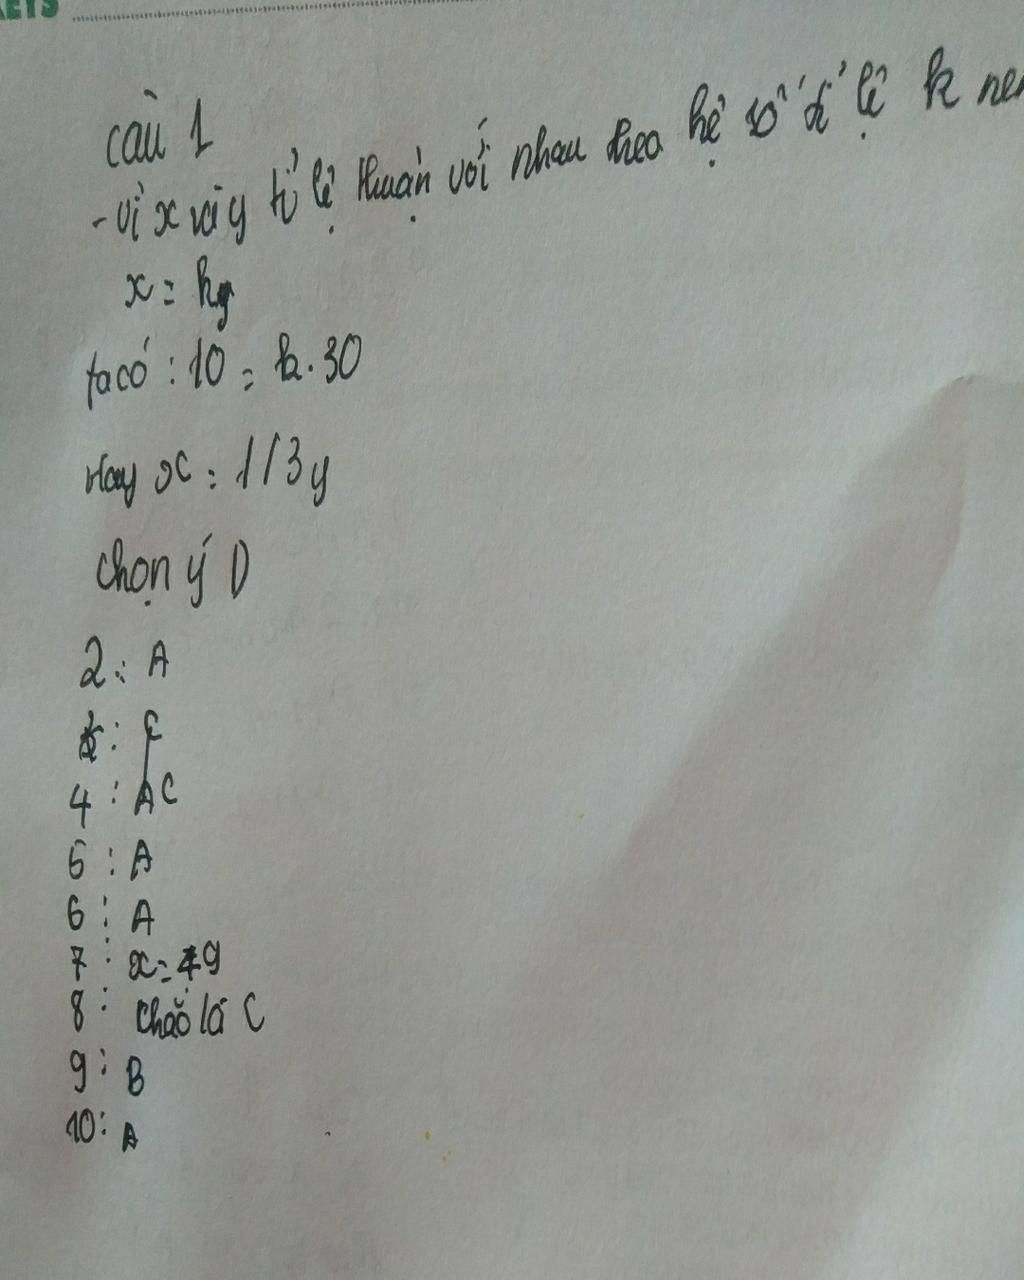 KEYS
câu 1
- vì x và y tỉ lệ thuận với nhau theo hệ số tỉ lệ k nên
x = ky
ta có : 10 = k.30
Hay x = 1/3y
chọn ý D
2: A
C
4 : A C
5 : A
6 : A
7 : x = 49
8 : chắc là C
9 : B
10 : A